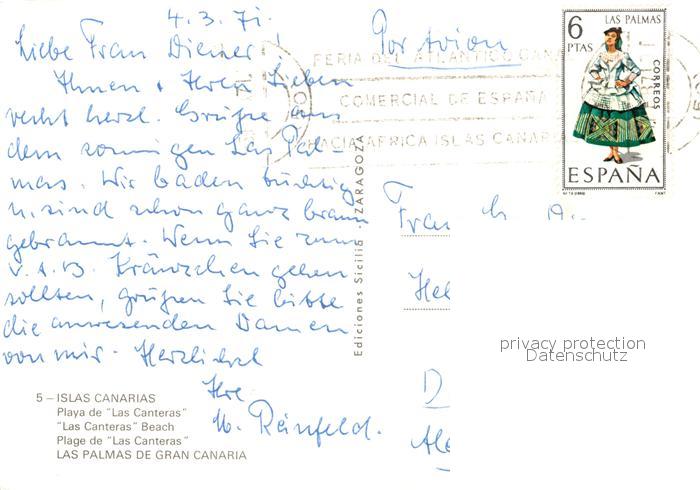 4.3.71.
Liebe Frau Diemer!
Ihnen + Ihren Lieben
recht herzl. Grüße aus
dem sonnigen Las Pal-
mas. Wir baden tüchtig
u. sind schon ganz braun
gebrannt. Wenn Sie zum
V.d.B. Kränzchen gehen
sollten, grüßen Sie bitte
die anwesenden Damen
von mir. Herzlichst
Ihre
M. Reinfeld.
5 – ISLAS CANARIAS
Playa de "Las Canteras"
"Las Canteras" Beach
Plage de "Las Canteras"
LAS PALMAS DE GRAN CANARIA
Ediciones Sicilia - ZARAGOZA
Por Avion
FERIA DEL ATLANTICO CANA
COMERCIAL DE ESPAÑA
HACIA AFRICA ISLAS CANAR
6 LAS PALMAS
PTAS
CORREOS
ESPAÑA
Frau
Hel
D
Ale
privacy protection
Datenschutz